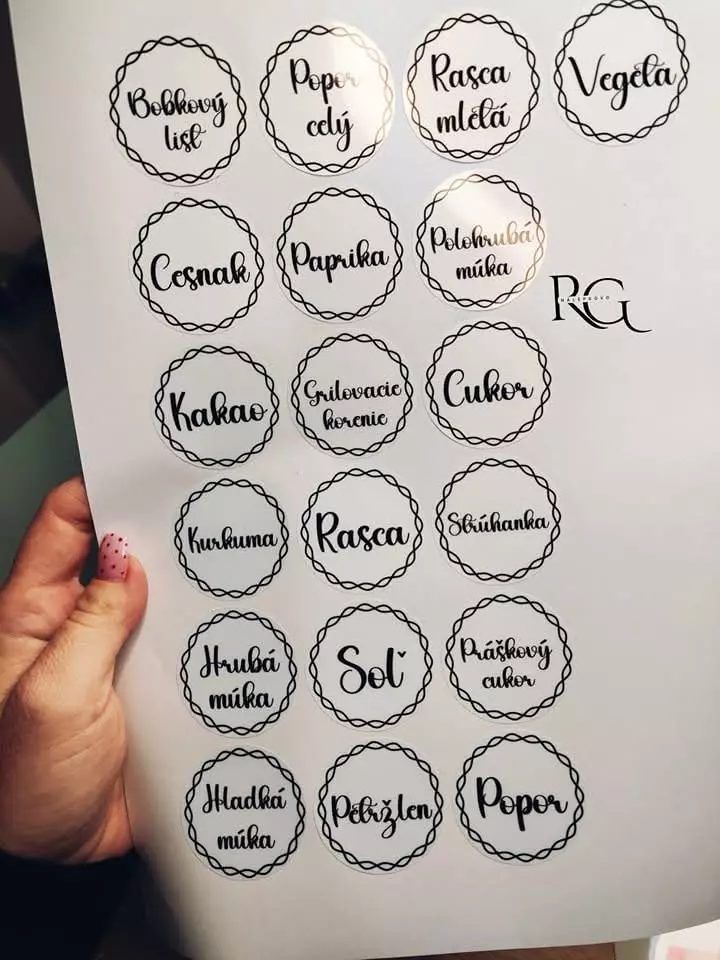 Bobkový
list
Popor
celý
Rasca
mletá
Vegeta
Cesnak
Paprika
Polohrubá
múka
RG
NALEPKOVO
Kakao
Grilovacie
korenie
Cukor
Kurkuma
Rasca
Strúhanka
Hrubá
múka
Soľ
Práškový
cukor
Hladká
múka
Petržlen
Popor